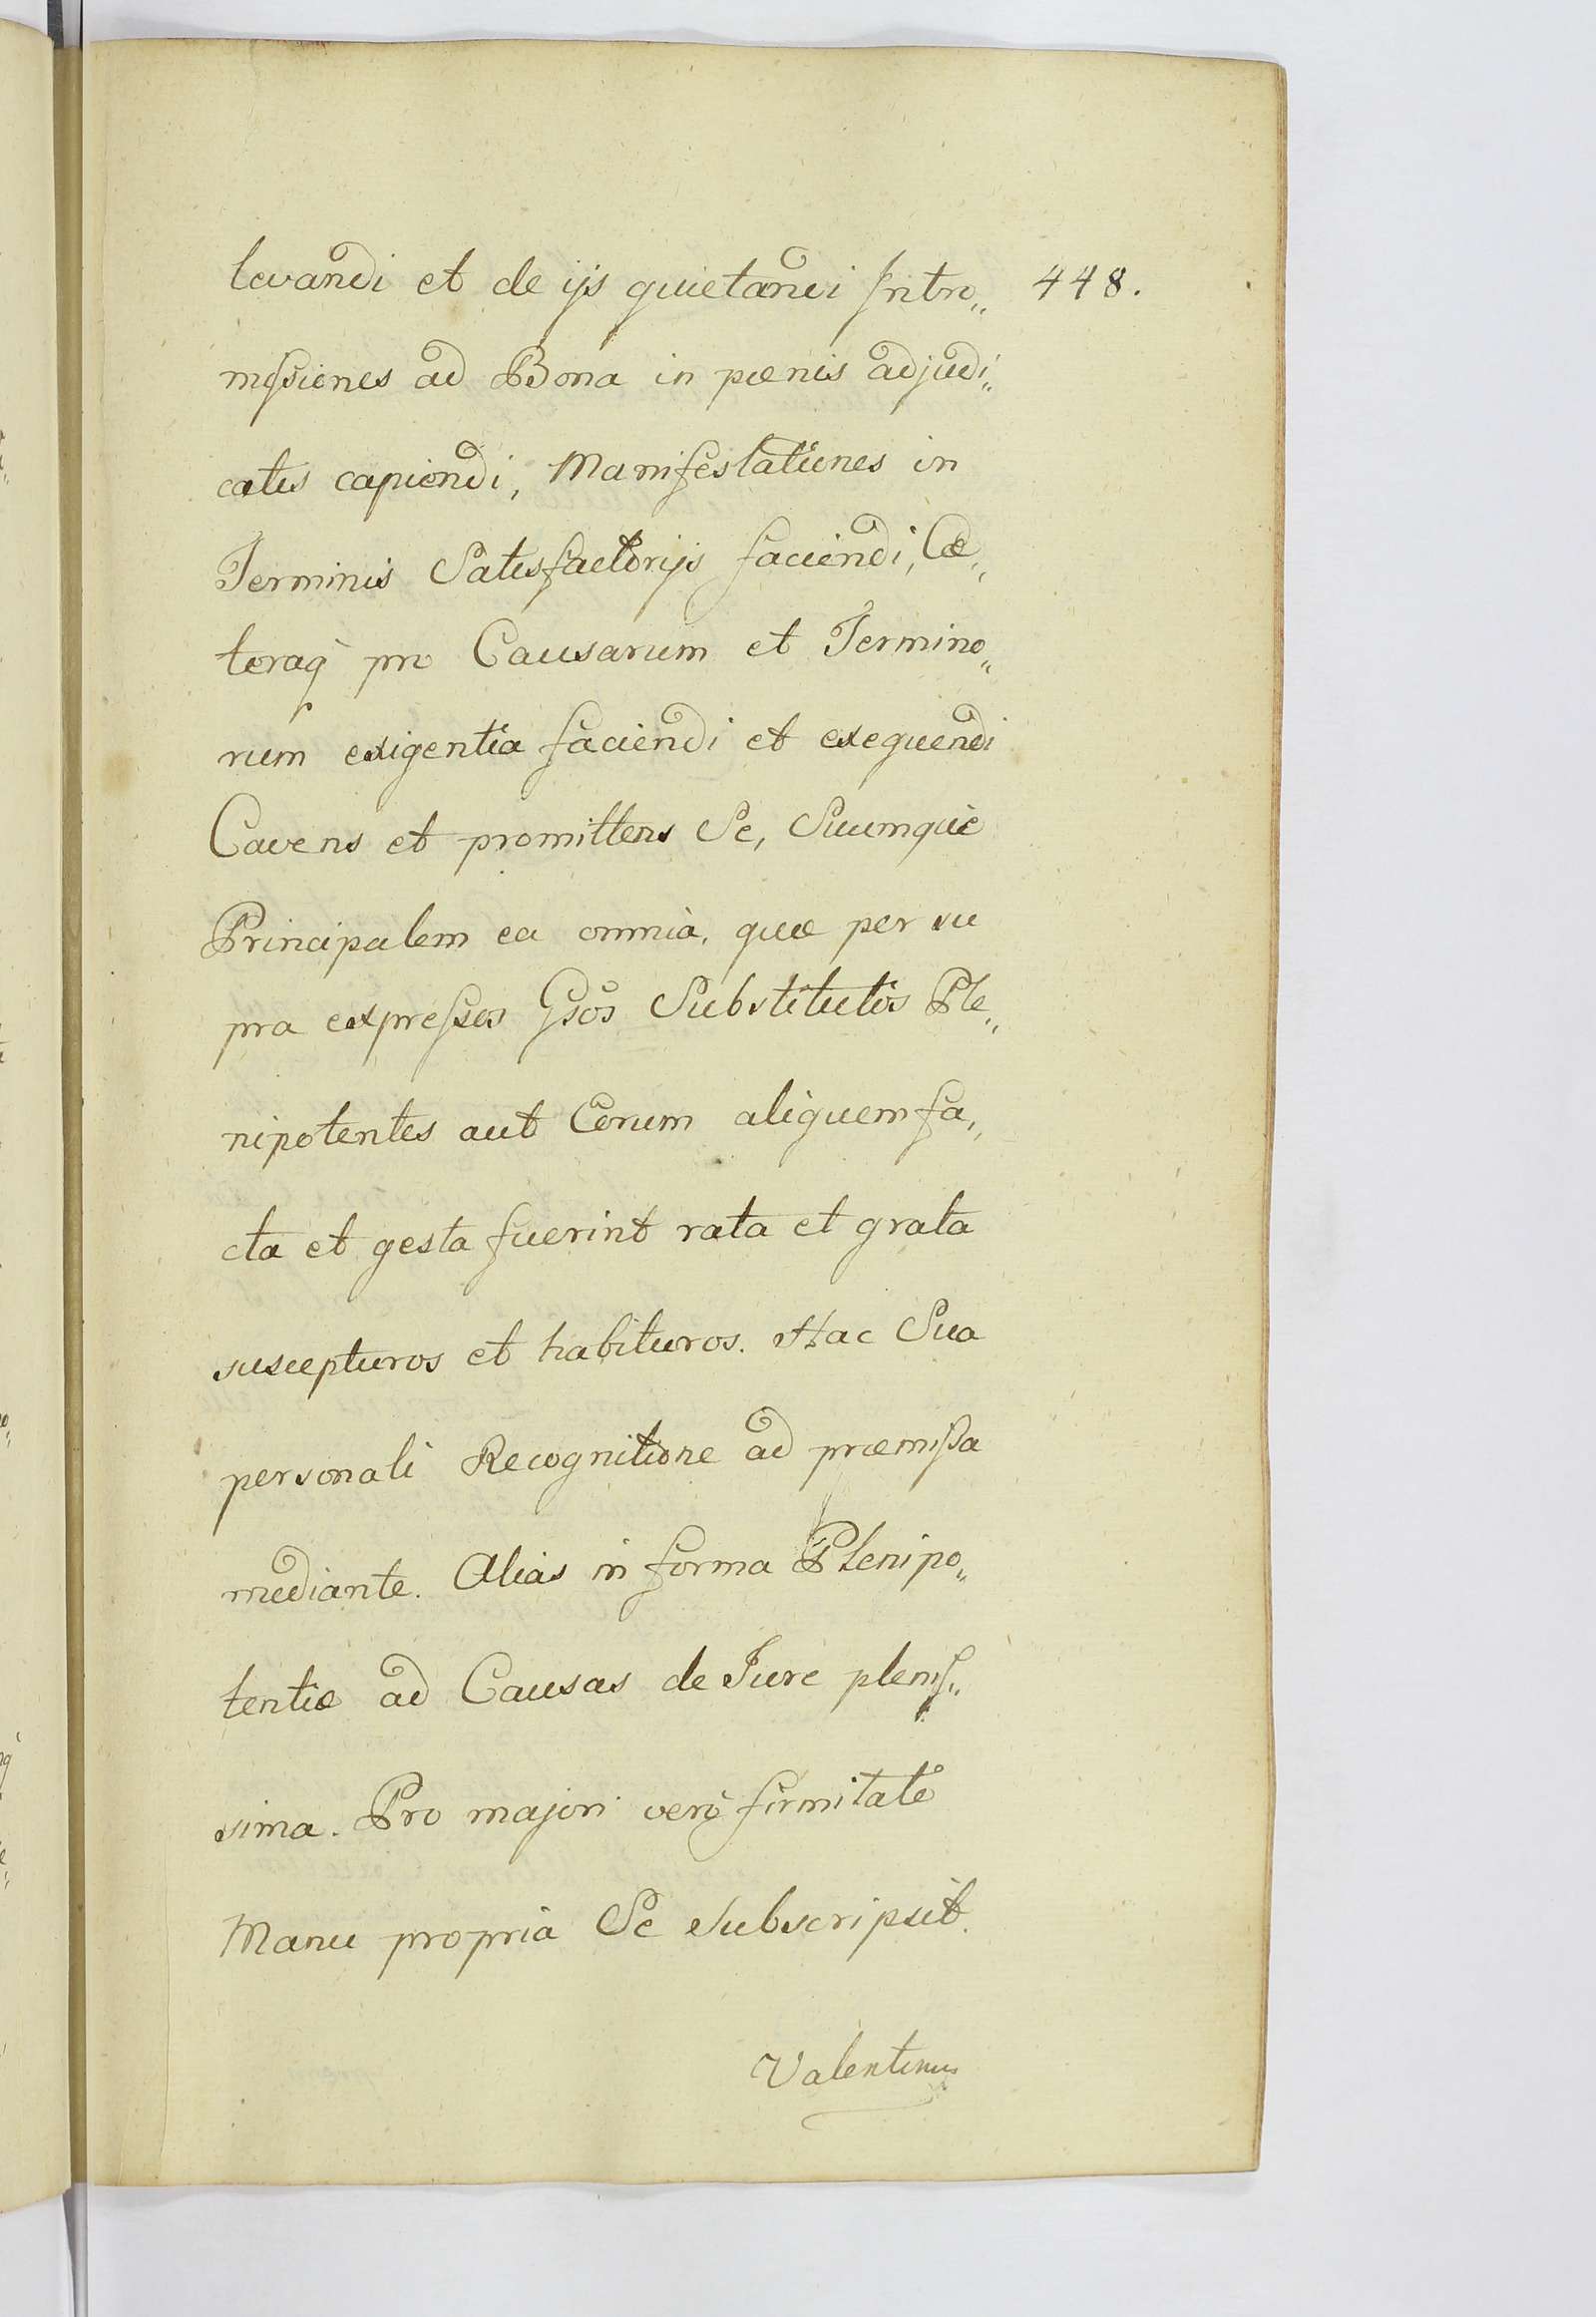 levandi et de ijs quietandi Intro„ 448.
mißiones ad Bona in pœnis adjudi„
catis capiendi, Manifestationes in
Terminis Satisfactorijs faciendi, Cæ„
teraq̀ pro Causarum et Termino„
rum exigentia faciendi et exequendi
Cavens et promittens Se, Suumquè
Principalem ea omnià, quæ per su
pra expreßos Gsos Substitutos Ple„
nipotentes aut Eorum aliquem fa„
cta et gesta fuerint rata et grata
suscepturos et habituros. Hac Sua
personali Recognitione ad præmißa
mediante. Alias in forma Plenipo„
tentiæ ad Causas de Jure plenis„
sima. Pro majori verò firmitate
Manu proprià Se subscripsit.
Valentinus